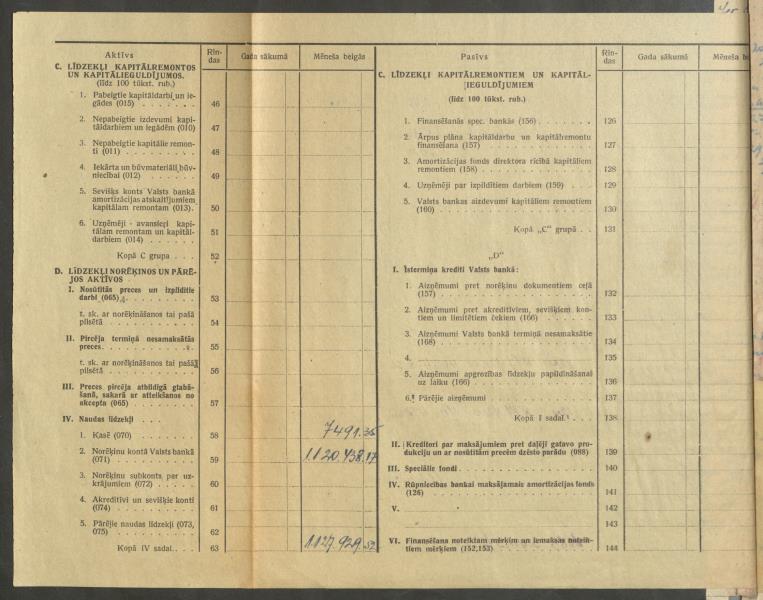 Aktīvs
Rin-
das
Gada sākumā
Mēneša beigās
C. LĪDZEKĻI KAPITĀLREMONTOS
UN KAPITĀLIEGULDĪJUMOS.
(līdz 100 tūkst. rub.)
1. Pabeigtie kapitāldarbi un ie-
gādes (015) . . . . . . . 46
2. Nepabeigtie izdevumi kapi-
tāldarbiem un iegādēm (010) 47
3. Nepabeigtie kapitālie remon-
ti (011) . . . . . . . . . 48
4. Iekārta un būvmateriāli būv-
niecībai (012) . . . . . . 49
5. Sevišķs konts Valsts bankā
amortizācijas atskaitījumiem
kapitālam remontam (013) . 50
6. Uzņēmēji - avansieŗi kapi-
tālam remontam un kapitāl-
darbiem (014) . . . . . . 51
Kopā C grupa . . . 52
D. LĪDZEKĻI NORĒĶINOS UN PĀRĒ-
JOS AKTĪVOS
I. Nosūtītās preces un izpildītie
darbi (065) . . . . . . . 53
t. sk. ar norēķināšanos tai pašā
pilsētā . . . . . . . . . 54
II. Pircēja termiņā nesamaksātās
preces . . . . . . . . . 55
t. sk. ar norēķināšanos tai pašā
pilsētā . . . . . . . . . 56
III. Preces pircēja atbildīgā glabā-
šanā, sakarā ar atteikšanos no
akcepta (065) . . . . . . 57
IV. Naudas līdzekļi . . .
1. Kasē (070) . . . . . . 58 7491.35
2. Norēķinu kontā Valsts bankā
(071) . . . . . . . . . 59 1.120.438.17
3. Norēķinu subkonts per uz-
krājumiem (072) . . . . . 60
4. Akreditīvi un sevišķie konti
(074) . . . . . . . . . 61
5. Pārējie naudas līdzekļi (073,
075) . . . . . . . . . 62
Kopā IV sadaļ. . . . 63 1.127.929.52
Pasīvs
Rin-
das
Gada sākumā
Mēneša be
C. LĪDZEKĻI KAPITĀLREMONTIEM UN KAPITĀL-
IEGULDĪJUMIEM
(līdz 100 tūkst. rub.)
1. Finansēšanās spec. bankās (156) . . . . . . . 126
2. Ārpus plāna kapitāldarbu un kapitālremontu
finansēšana (157) . . . . . . . . . . 127
3. Amortizācijas fonds direktora rīcībā kapitāliem
remontiem (158) . . . . . . . . . . 128
4. Uzņēmēji par izpildītiem darbiem (159) . . . 129
5. Valsts bankas aizdevumi kapitāliem remontiem
(160) . . . . . . . . . . . . . 130
Kopā „C" grupā . . 131
„D"
I. Īstermiņa krediti Valsts bankā:
1. Aizņēmumi pret norēķinu dokumentiem ceļā
(157) . . . . . . . . . . . . . 132
2. Aizņēmumi pret akreditīviem, sevišķiem kon-
tiem un limitētiem čekiem (166) . . . . . . 133
3. Aizņēmumi Valsts bankā termiņā nesamaksātie
(168) . . . . . . . . . . . . . 134
4. . . . . . . . . . . . . . 135
5. Aizņēmumi apgrozības līdzekļu papildināšanai
uz laiku (166) . . . . . . . . . . . 136
6. Pārējie aizņēmumi . . . . . . . . . . 137
Kopā I sadaļ. . . . 138
II. Kreditori par maksājumiem pret daļēji gatavo pro-
dukciju un ar nosūtītām precēm dzēsto parādu (088) 139
III. Speciālie fondi . . . . . . . . . . . . 140
IV. Rūpniecības bankai maksājamais amortizācijas fonds
(126) . . . . . . . . . . . . . . 141
V. . . . . . . . . . . . . . . 142
143
VI. Finansēšana noteiktam mērķim un iemaksas noteik-
tiem mērķiem (152,153) . . . . . . . . . 144